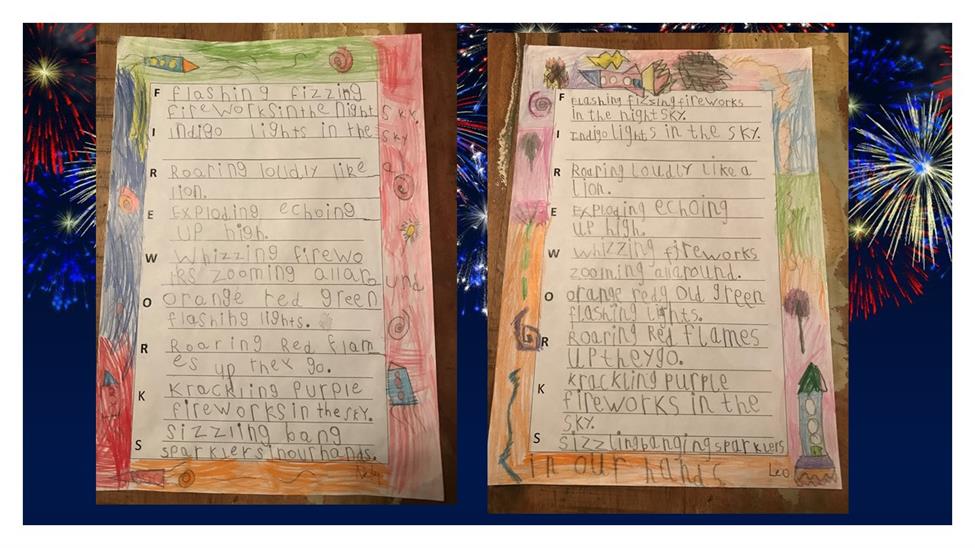 F flashing fizzing
fireworks in the night sky.
I Indigo lights in the sky
R Roaring loudly like a
lion.
E Exploding echoing
up high.
W Whizzing firewo
rks zooming allaround
O orange red green
flashing lights.
R Roaring Red flam
es up they go.
K Krackling Purple
fireworks in the sky.
S Sizzling bang
sparklers in our hands.
F Flashing fizzing fireworks
in the night sky.
I Indigo lights in the sky.
R Roaring Loudly like a
lion.
E Exploding echoing
up high.
W Whizzing fireworks
zooming allaround.
O orange red gold green
flashing lights.
R Roaring Red flames
up they go.
K Krackling purple
fireworks in the
sky.
S Sizzling banging sparklers
in our hands
Leo